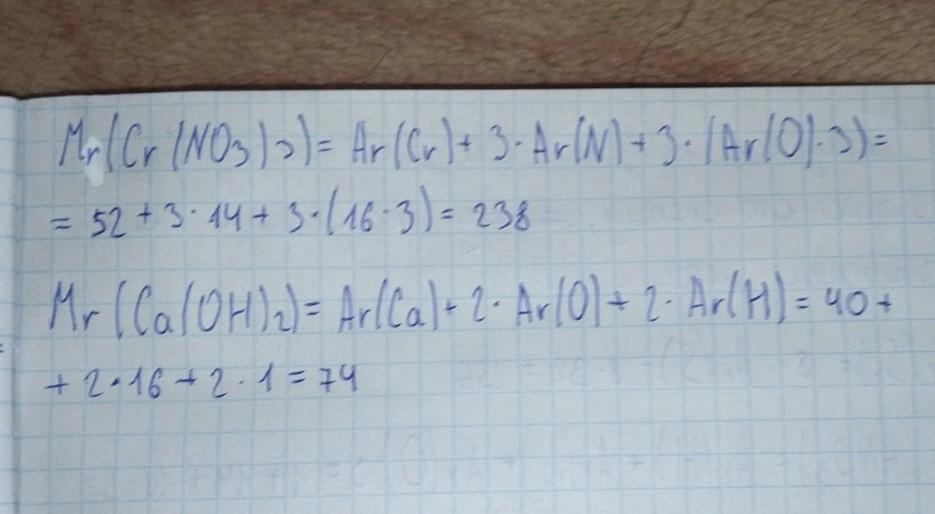 Mr(Cr(NO3)3) = Ar(Cr) + 3 · Ar(N) + 3 · (Ar(O) · 3) =
= 52 + 3 · 14 + 3 · (16 · 3) = 238
Mr(Ca(OH)2) = Ar(Ca) + 2 · Ar(O) + 2 · Ar(H) = 40 +
+ 2 · 16 + 2 · 1 = 74